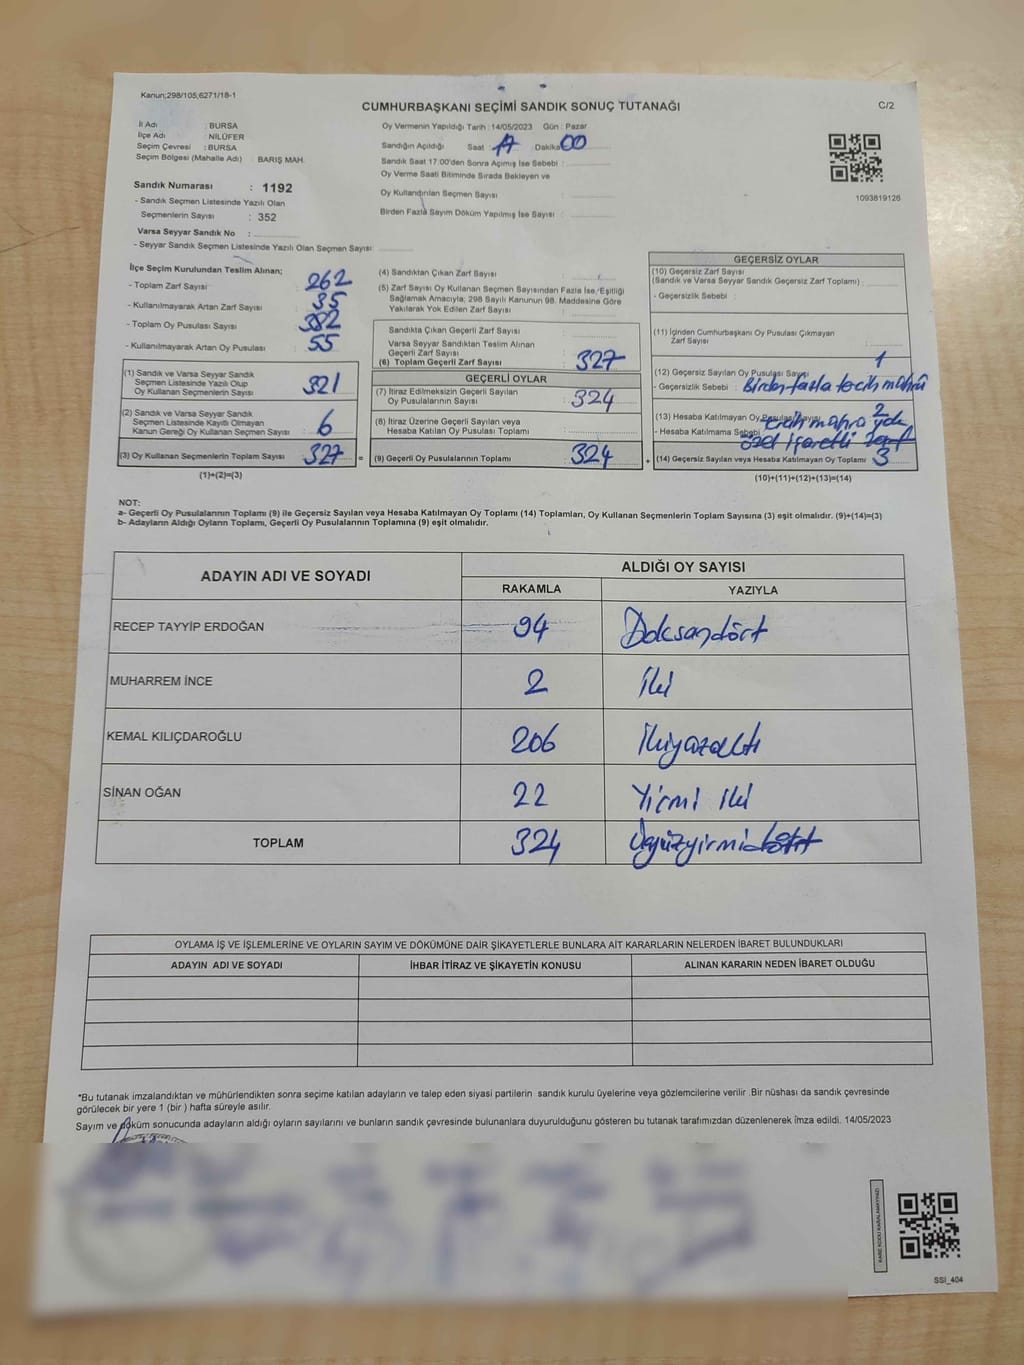 Kanun;298/105,6271/18-1
CUMHURBAŞKANI SEÇİMİ SANDIK SONUÇ TUTANAĞI
C/2
İl Adı : BURSA
İlçe Adı : NİLÜFER
Seçim Çevresi : BURSA
Seçim Bölgesi (Mahalle Adı) : BARIŞ MAH.
Sandık Numarası : 1192
- Sandık Seçmen Listesinde Yazılı Olan
Seçmenlerin Sayısı : 352
Varsa Seyyar Sandık No :
- Seyyar Sandık Seçmen Listesinde Yazılı Olan Seçmen Sayısı:
Oy Vermenin Yapıldığı Tarih : 14/05/2023 Gün : Pazar
Sandığın Açıldığı Saat Dakika 00
Sandık Saat 17.00'den Sonra Açılmış İse Sebebi :
Oy Verme Saati Bitiminde Sırada Bekleyen ve
Oy Kullandırılan Seçmen Sayısı :
Birden Fazla Sayım Döküm Yapılmış İse Sayısı :
1093819126
İlçe Seçim Kurulundan Teslim Alınan;
- Toplam Zarf Sayısı : 262
- Kullanılmayarak Artan Zarf Sayısı : 35
- Toplam Oy Pusulası Sayısı : 382
- Kullanılmayarak Artan Oy Pusulası : 55
(1) Sandık ve Varsa Seyyar Sandık
Seçmen Listesinde Yazılı Olup
Oy Kullanan Seçmenlerin Sayısı : 321
(2) Sandık ve Varsa Seyyar Sandık
Seçmen Listesinde Kayıtlı Olmayan
Kanun Gereği Oy Kullanan Seçmen Sayısı : 6
(3) Oy Kullanan Seçmenlerin Toplam Sayısı : 327 =
(1)+(2)=(3)
(4) Sandıktan Çıkan Zarf Sayısı :
(5) Zarf Sayısı Oy Kullanan Seçmen Sayısından Fazla İse,Eşitliği
Sağlamak Amacıyla; 298 Sayılı Kanunun 98. Maddesine Göre
Yakılarak Yok Edilen Zarf Sayısı :
Sandıkta Çıkan Geçerli Zarf Sayısı :
Varsa Seyyar Sandıktan Teslim Alınan
Geçerli Zarf Sayısı :
(6) Toplam Geçerli Zarf Sayısı : 327
GEÇERLİ OYLAR
(7) İtiraz Edilmeksizin Geçerli Sayılan
Oy Pusulalarının Sayısı : 324
(8) İtiraz Üzerine Geçerli Sayılan veya
Hesaba Katılan Oy Pusulası Toplamı :
(9) Geçerli Oy Pusulalarının Toplamı : 324 +
GEÇERSİZ OYLAR
(10) Geçersiz Zarf Sayısı
(Sandık ve Varsa Seyyar Sandık Geçersiz Zarf Toplamı) :
- Geçersizlik Sebebi :
(11) İçinden Cumhurbaşkanı Oy Pusulası Çıkmayan
Zarf Sayısı :
(12) Geçersiz Sayılan Oy Pusulası Sayısı 1
- Geçersizlik Sebebi : Birden fazla tercih mührü
(13) Hesaba Katılmayan Oy Pusulası Sayısı 2
- Hesaba Katılmama Sebebi tercih mührü yok
özel işaretli
(14) Geçersiz Sayılan veya Hesaba Katılmayan Oy Toplamı : 3
(10)+(11)+(12)+(13)=(14)
NOT:
a- Geçerli Oy Pusulalarının Toplamı (9) ile Geçersiz Sayılan veya Hesaba Katılmayan Oy Toplamı (14) Toplamları, Oy Kullanan Seçmenlerin Toplam Sayısına (3) eşit olmalıdır. (9)+(14)=(3)
b- Adayların Aldığı Oyların Toplamı, Geçerli Oy Pusulalarının Toplamına (9) eşit olmalıdır.
ADAYIN ADI VE SOYADI
ALDIĞI OY SAYISI
RAKAMLA YAZIYLA
RECEP TAYYİP ERDOĞAN 94 Doksandört
MUHARREM İNCE 2 İki
KEMAL KILIÇDAROĞLU 206 İkiyüzaltı
SİNAN OĞAN 22 Yirmi iki
TOPLAM 324 Üçyüzyirmidört
OYLAMA İŞ VE İŞLEMLERİNE VE OYLARIN SAYIM VE DÖKÜMÜNE DAİR ŞİKAYETLERLE BUNLARA AİT KARARLARIN NELERDEN İBARET BULUNDUKLARI
ADAYIN ADI VE SOYADI İHBAR İTİRAZ VE ŞİKAYETİN KONUSU ALINAN KARARIN NEDEN İBARET OLDUĞU
*Bu tutanak imzalandıktan ve mühürlendikten sonra seçime katılan adayların ve talep eden siyasi partilerin sandık kurulu üyelerine veya gözlemcilerine verilir .Bir nüshası da sandık çevresinde
görülecek bir yere 1 (bir ) hafta süreyle asılır.
Sayım ve döküm sonucunda adayların aldığı oyların sayılarını ve bunların sandık çevresinde bulunanlara duyurulduğunu gösteren bu tutanak tarafımızdan düzenlenerek imza edildi. 14/05/2023
KARE KODU KARALAMAYINIZ!
SSI_404